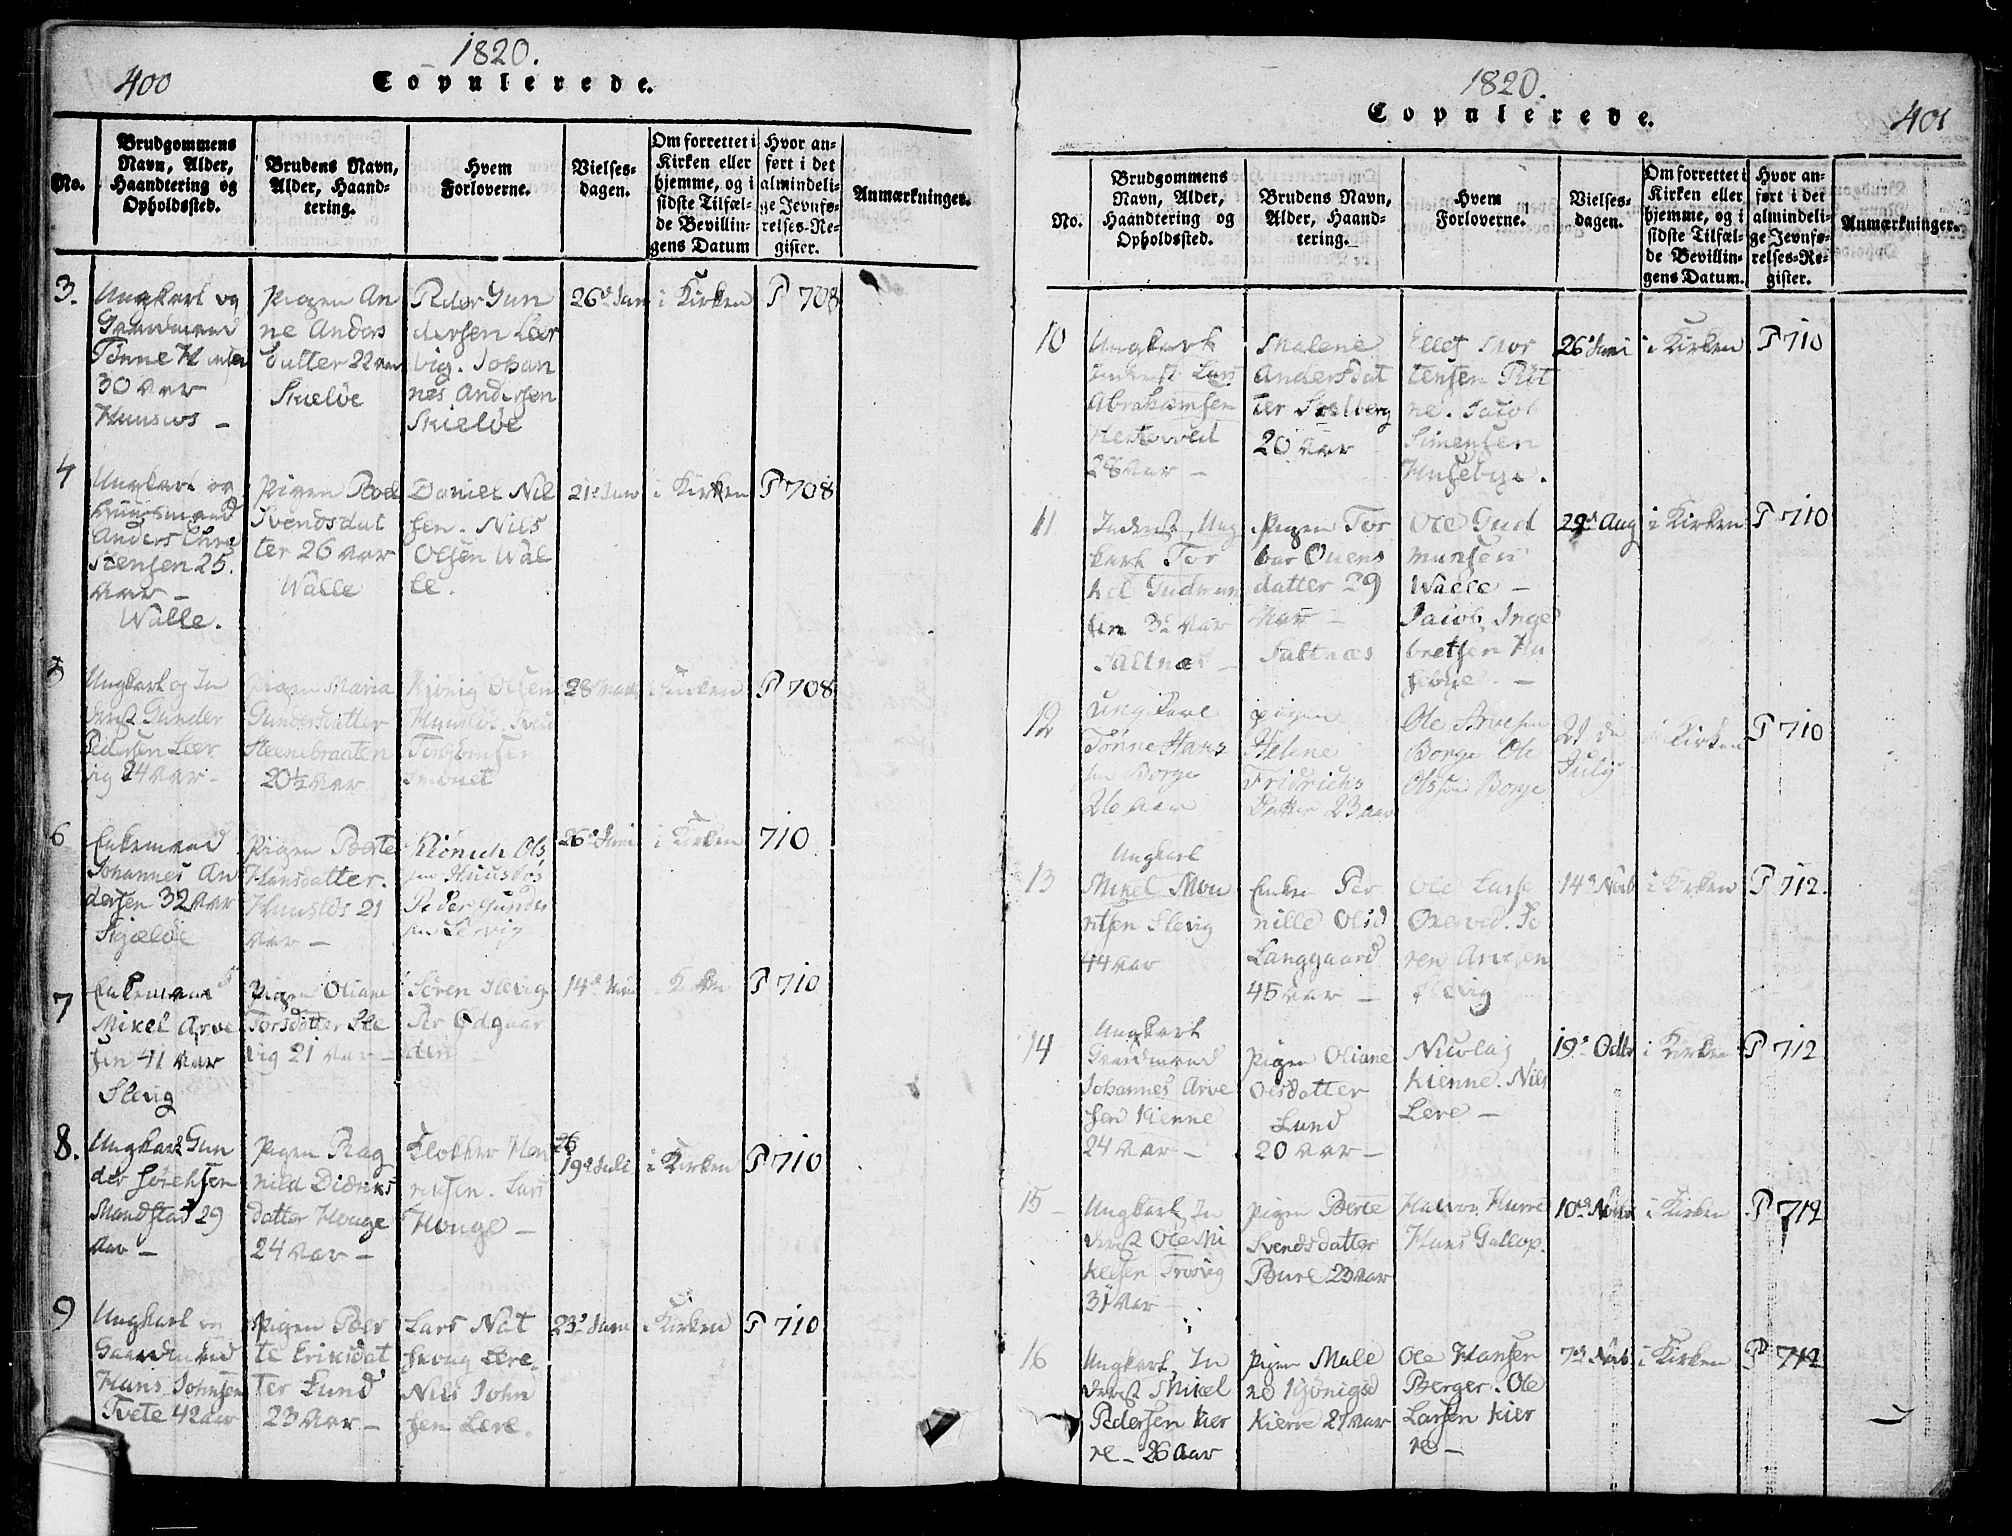 400
1820.
Copulerede.
No.
Brudgommens Navn, Alder, Haandtering og Opholdssted.
Brudens Navn, Alder, Haandtering.
Hvem Forloverne.
Vielses-dagen.
Om forrettet i Kirken eller hjemme, og i sidste Tilfælde Bevillingens Datum
Hvor anført i det almindelige Jevnførelses-Register.
Anmærkninger.
3.
Ungkarl og
Gaardmand
Tønne H
30 Aar
Huusløs
Pigen An
ne Anders
datter 22 aar
Skieløe
Peder Gun
dersen Lær
vig. Johan
nes Andersen
Skieløe
26d Jan
i Kirken
P 708
4
Ungkarl og
Huusmand
Anders Chri
stensen 25.
Aar –
Walle.
Pigen Boel
Svendsdat
ter 26 Aar
Walle
Daniel Nil
sen. Nils
Olsen Wal
le.
21d
i Kirken
P 708
5
Ungkarl og In
derst Gunder
Pedersen Lær
vig 24 Aar –
Pigen Maria
Gundersdatter
Steenebraaten
20½ Aar
Olsen
28
i Kirken
P 708
6
Enkemand
Johannes An
dersen 32 Aar
Skjæløe
Pigen Berte
Hansdatter.
Huusløs 21
Aar –
Kiønich Ols
sen Huusløs
Peder Gunder
sen Lervig
26d Juni
i Kirken
710
7
Enkemand
Mikel Arve
sen 41 Aar
Slevig
Pigen Oliane
Torsdatter Sle
vig 21 Aar –
Søren Slevig
Per Odgaar
den
14d
P 710
8.
Ungkarl Gun
der Sørensen
Mandstad 29
Aar –
Pigen Rag
nild Didriks
datter Houge
24 Aar –
Klokker Hen
riksen. Lars
Houge –
26
19d Juli
i Kirken
P 710
9
Ungkarl og
Gaardmand
Hans Johnsen
Tvete 42 aar
Pigen Ber
te Eriksdat
ter Lund
23 Aar –
Lars Nat
Lere.
Nils John
sen Lere.
23d
i Kirken
P 710
1820.
Copulerede.
401
No.
Brudgommens Navn, Alder, Haandtering og Opholdssted.
Brudens Navn, Alder, Haandtering.
Hvem Forloverne.
Vielses-dagen.
Om forrettet i Kirken eller hjemme, og i sidste Tilfælde Bevillingens Datum.
Hvor anført i det almindelige Jevnførelses-Register.
Anmærkninger.
10
Ungkarl
Inderst Lars
Abrahamsen
28 Aar –
Malene
Andersdat
ter Solberg
20 Aar
tensen
ne. Jacob
Simensen
Husebye.
26d Juni
i Kirken
P 710
11
Inderst, Ung
karl Tor
kel Gudmun
sen 32 Aar
Saltnæs –
Pigen Tor
bor Ouens
datter 29
Aar –
Saltnæs
Ole Gud
munsen
Walle –
Jacob Inge
bretsen Hu
sebye. –
29d Aug
i Kirken
P 710
12
Ungkarl
Tønne Hans
sen Borge
pigen
Helene
Fridrichs
Datter 23 aar
Ole Arvesen
Borge Ole
Olssen Borge
21 de
July
i Kirken
P 710
13
Ungkarl
Mikel Mou
ritsen Slevig
44 Aar
Enken Per
nille Olsd
Langgaard
45 Aar –
Ole Lars
Oxerød. Sø
ren Arvesen
Slevig
14d Novb
i Kirken
P 712.
14
Ungkarl
Gaardmand
Johannes Arve
sen Kienne
24 Aar –
pigen Oliane
Olsdatter
Lund
20 Aar –
Nicolaj
Kienne. Nils
Lere –
19d Octbr
i Kirken
P 712
15 –
Ungkarl, In
derst Ole Mi
kelsen Trosvig
31 Aar –
pigen Berte
Svendsdatter
Bure 23 Aar
Halvor Hurre
Hans Gallop.
10d Novbr
i Kirken
P 712
16
Ungkarl, In
derst Mikel
Pedersen Kier
re – 26 Aar
Pigen Male
ne Kjønigsd
Kierre 27 Aar
Ole Hansen
Berger. Ole
Larsen Kier
re –
7d Novb
i Kirken
P 712